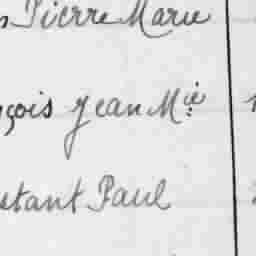 Pierre Marie
nçois Jean Mie
stant Paul